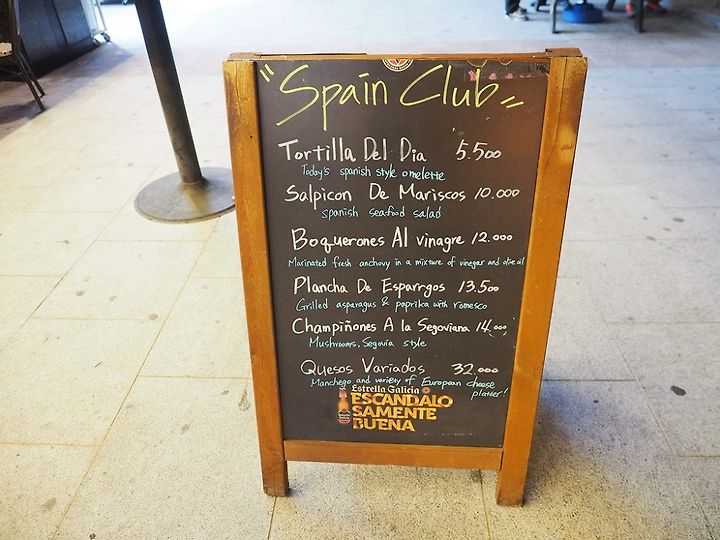 "Spain Club"
Tortilla Del Dia 5.500
Today's spanish style omelette
Salpicon De Mariscos 10.000
spanish seafood salad
Boquerones Al vinagre 12.000
Marinated fresh anchovy in a mixture of vinegar and olive oil
Plancha De Esparrgos 13.500
Grilled asparagus & paprika with romesco
Champiñones A la Segoviana 14.000
Mushrooms, Segovia style
Quesos Variados 32.000
Manchego and variety of European cheese
platter!
Estrella Galicia
ESCANDALO
SAMENTE
BUENA